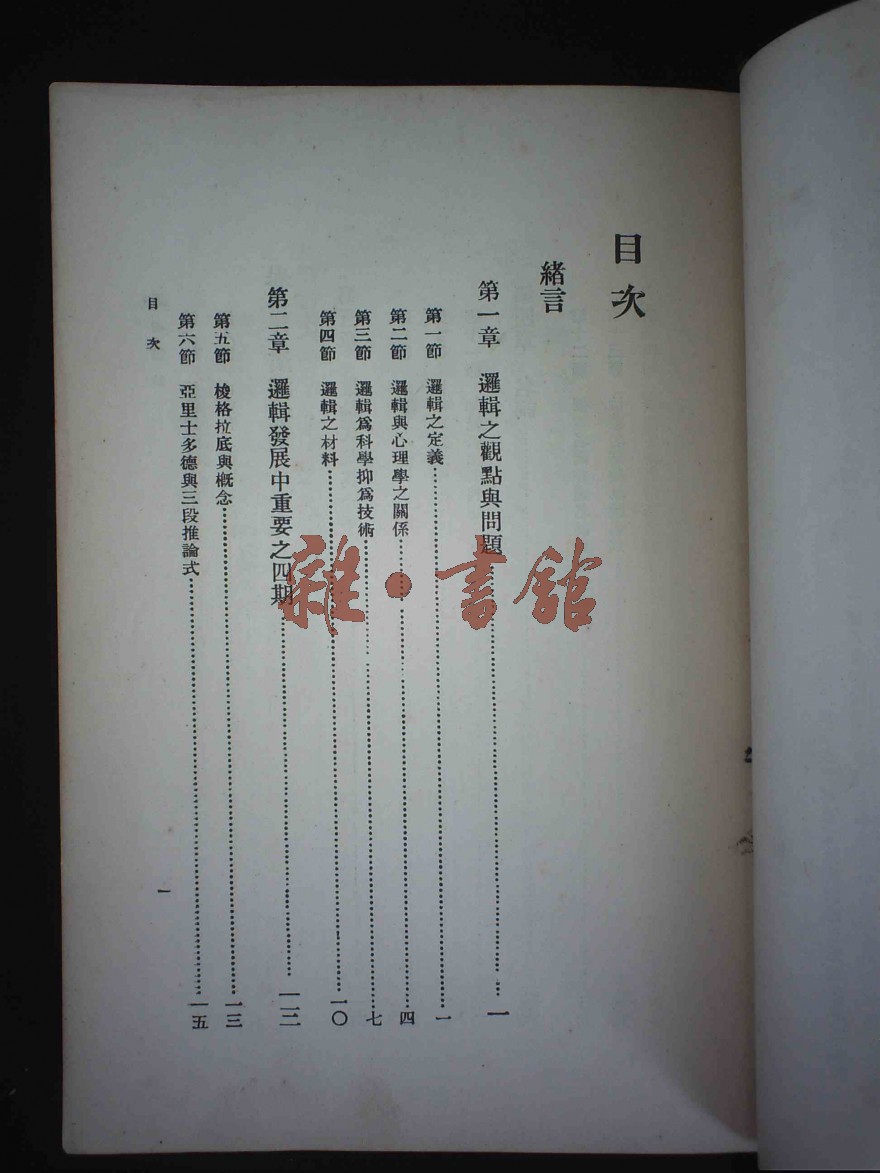 目次
緒言
第一章 邏輯之觀點與問題……一
第一節 邏輯之定義……一
第二節 邏輯與心理學之關係……四
第三節 邏輯爲科學抑爲技術……七
第四節 邏輯之材料……一〇
第二章 邏輯發展中重要之四期……一三
第五節 梭格拉底與概念……一三
第六節 亞里士多德與三段推論式……一五
目次
一
雜·書館